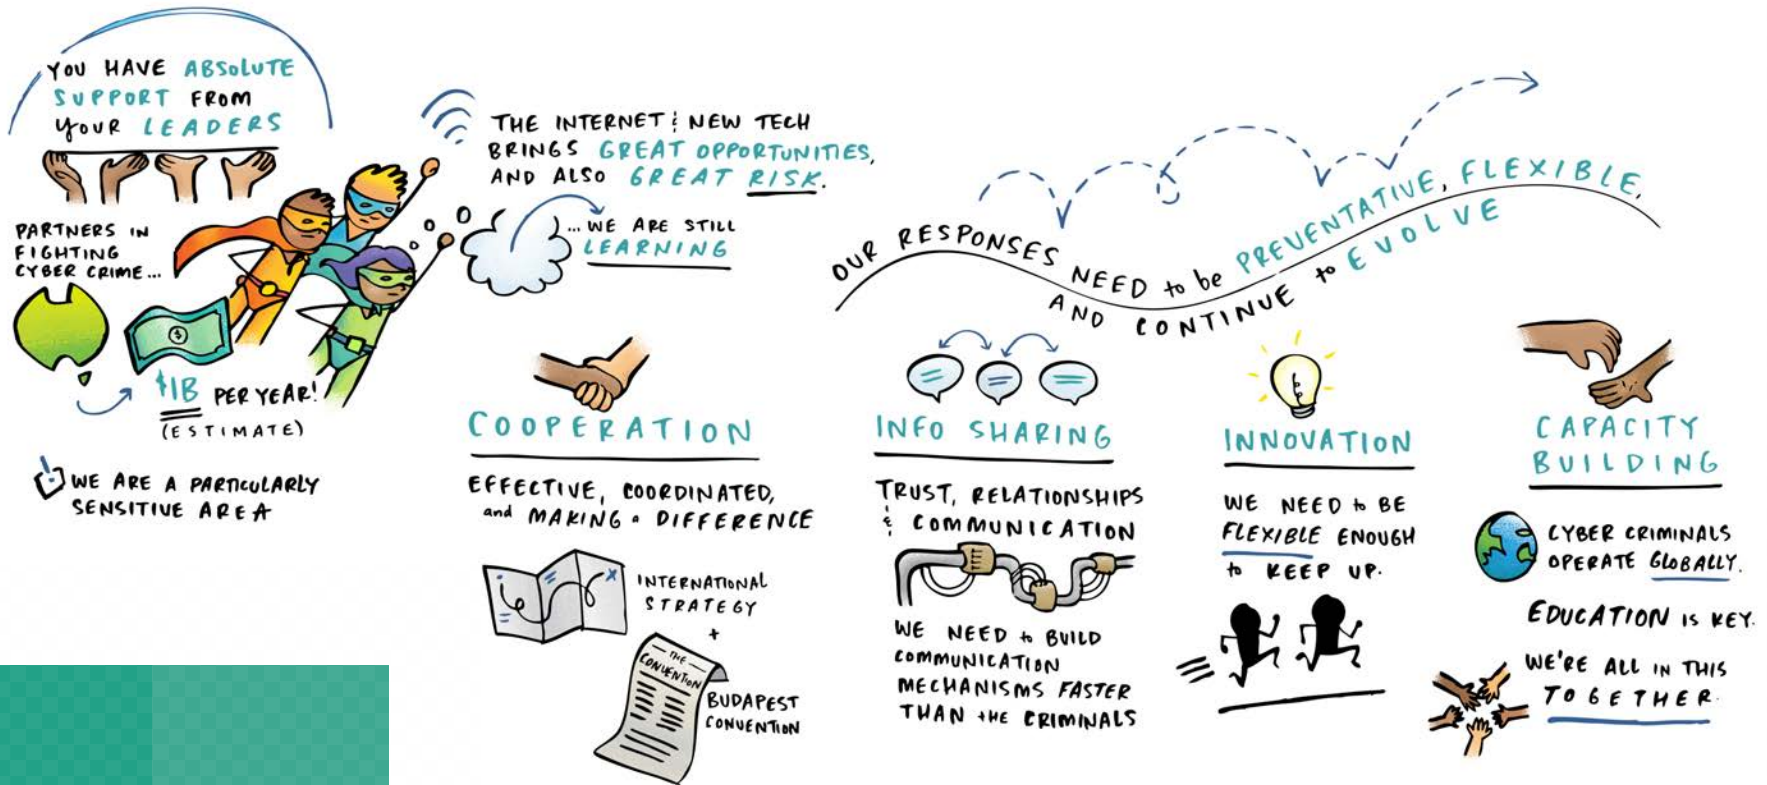 YOU HAVE ABSOLUTE
SUPPORT FROM
YOUR LEADERS
PARTNERS IN
FIGHTING
CYBER CRIME...
$1B PER YEAR!
(ESTIMATE)
WE ARE A PARTICULARLY
SENSITIVE AREA
THE INTERNET & NEW TECH
BRINGS GREAT OPPORTUNITIES,
AND ALSO GREAT RISK.
...WE ARE STILL
LEARNING
OUR RESPONSES NEED to be PREVENTATIVE, FLEXIBLE,
AND CONTINUE to EVOLVE
COOPERATION
EFFECTIVE, COORDINATED,
and MAKING a DIFFERENCE
INTERNATIONAL
STRATEGY
+
THE
CONVENTION
BUDAPEST
CONVENTION
INFO SHARING
TRUST, RELATIONSHIPS
& COMMUNICATION
WE NEED to BUILD
COMMUNICATION
MECHANISMS FASTER
THAN the CRIMINALS
INNOVATION
WE NEED to BE
FLEXIBLE ENOUGH
to KEEP UP.
CAPACITY
BUILDING
CYBER CRIMINALS
OPERATE GLOBALLY.
EDUCATION IS KEY.
WE'RE ALL IN THIS
TOGETHER.